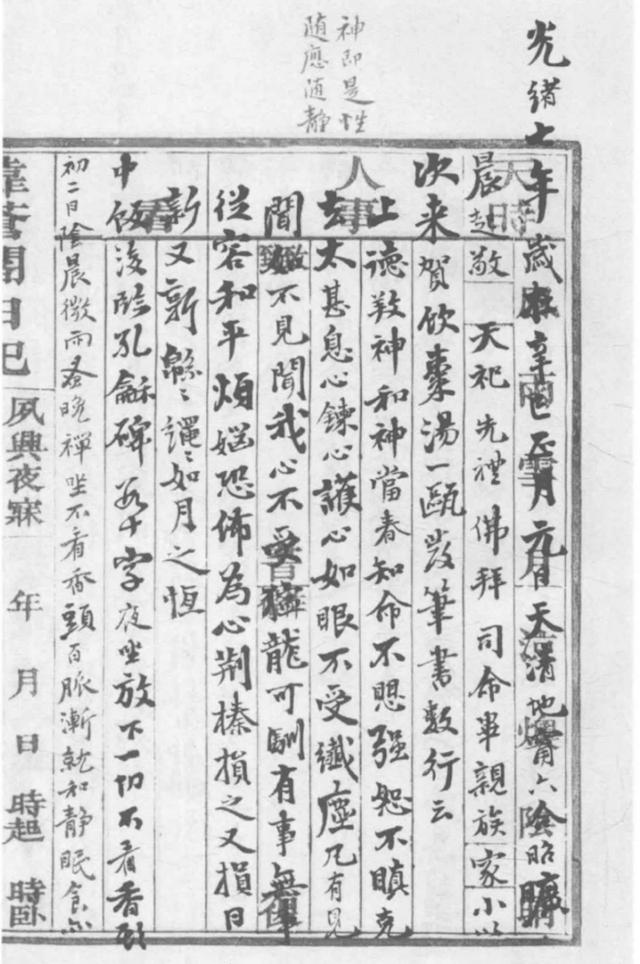 神即是性
随應随静
光緒七年歲在辛巳正月元日天清地甯六陰昭曠
晨起敬天祀先禮佛拜司命畢親族家小以
次来賀飲棗湯一甌發筆書數行云
上德教神和神當春知命不思强恕不瞋克
去太甚息心鍊心護心如眼不受纖塵凡有見
聞如不見聞我心不受獰龍可馴有事無事
從容和平煩惱恐怖為心荆榛損之又損日
新又新緜〻繩〻如月之恆
中飯後臨孔龢碑若干字夜坐放下一切不看香頭
初二日陰晨微雨蚤晚禪坐不看香頭百脈漸就和静眠食亦
日記
夙興夜寐 年 月 日 時起 時卧